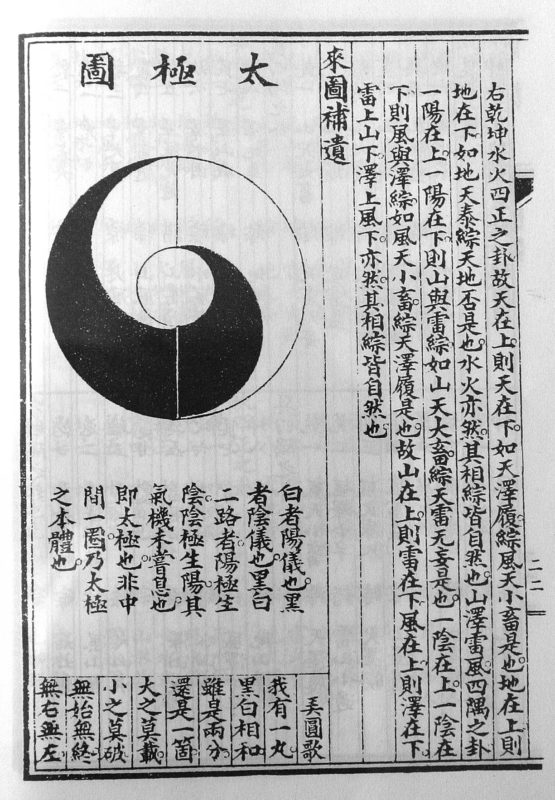 右乾坤水火四正之卦故天在上則天在下如天澤履綜風天小畜是也地在上則
地在下如地天泰綜天地否是也水火亦然其相綜皆自然也山澤雷風四隅之卦
一陽在上一陽在下則山與雷綜如山天大畜綜天雷无妄是也一陰在上一陰在
下則風與澤綜如風天小畜綜天澤履是也故山在上則雷在下風在上則澤在下
雷上山下澤上風下亦然其相綜皆自然也
來圖補遺
太極圖
白者陽儀也黑
者陰儀也黑白
二路者陽極生
陰陰極生陽其
氣機未嘗息也
即太極也非中
間一圈乃太極
之本體也
弄圓歌
我有一丸
黑白相和
雖是兩分
還是一箇
大之莫載
小之莫破
無始無終
無右無左
二二